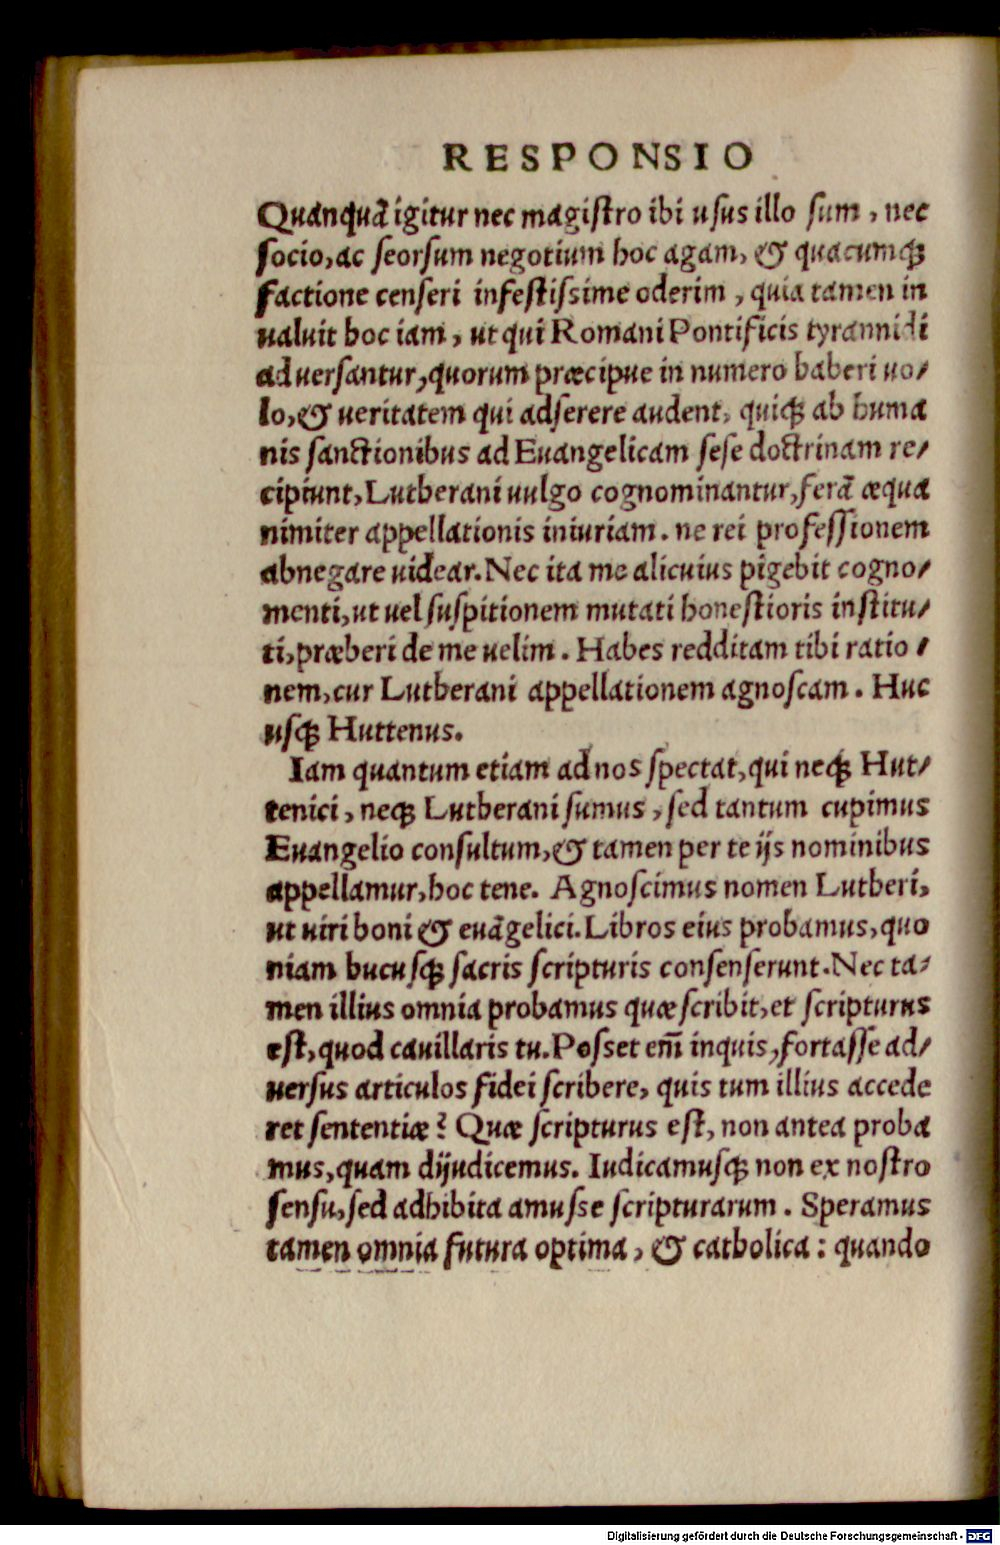 RESPONSIO
Quanquā igitur nec magiſtro ibi uſus illo ſum, nec
ſocio, ac ſeorſum negotium hoc agam, & quacumqȝ
factione cenſeri infeſtiſsime oderim, quia tamen in
ualuit hoc iam, ut qui Romani Pontificis tyrannidi
aduerſantur, quorum præcipue in numero haberi uo/
lo, & ueritatem qui adſerere audent, quiqȝ ab huma
nis ſanctionibus ad Euangelicam ſeſe doctrinam re/
cipiunt, Lutherani uulgo cognominantur, ferā æqua
nimiter appellationis iniuriam. ne rei profeſſionem
abnegare uidear. Nec ita me alicuius pigebit cogno/
menti, ut uel ſuſpitionem mutati honeſtioris inſtitu/
ti, præberi de me uelim. Habes redditam tibi ratio/
nem, cur Lutherani appellationem agnoſcam. Huc
uſqȝ Huttenus.
Iam quantum etiam ad nos ſpectat, qui neqȝ Hut/
tenici, neqȝ Lutherani ſumus, ſed tantum cupimus
Euangelio conſultum, & tamen per te ijs nominibus
appellamur, hoc tene. Agnoſcimus nomen Lutheri,
ut uiri boni & euāgelici. Libros eius probamus, quo
niam hucuſqȝ ſacris ſcripturis conſenſerunt. Nec ta/
men illius omnia probamus quæ ſcribit, et ſcripturus
eſt, quod cauillaris tu. Poſset em̄ inquis, fortaſſe ad/
uerſus articulos fidei ſcribere, quis tum illius accede
ret ſententiæ? Quæ ſcripturus eſt, non antea proba
mus, quam dijudicemus. Iudicamuſqȝ non ex noſtro
ſenſu, ſed adhibita amuſse ſcripturarum. Speramus
tamen omnia futura optima, & catholica: quando
Digitalisierung gefördert durch die Deutsche Forschungsgemeinschaft - DFG